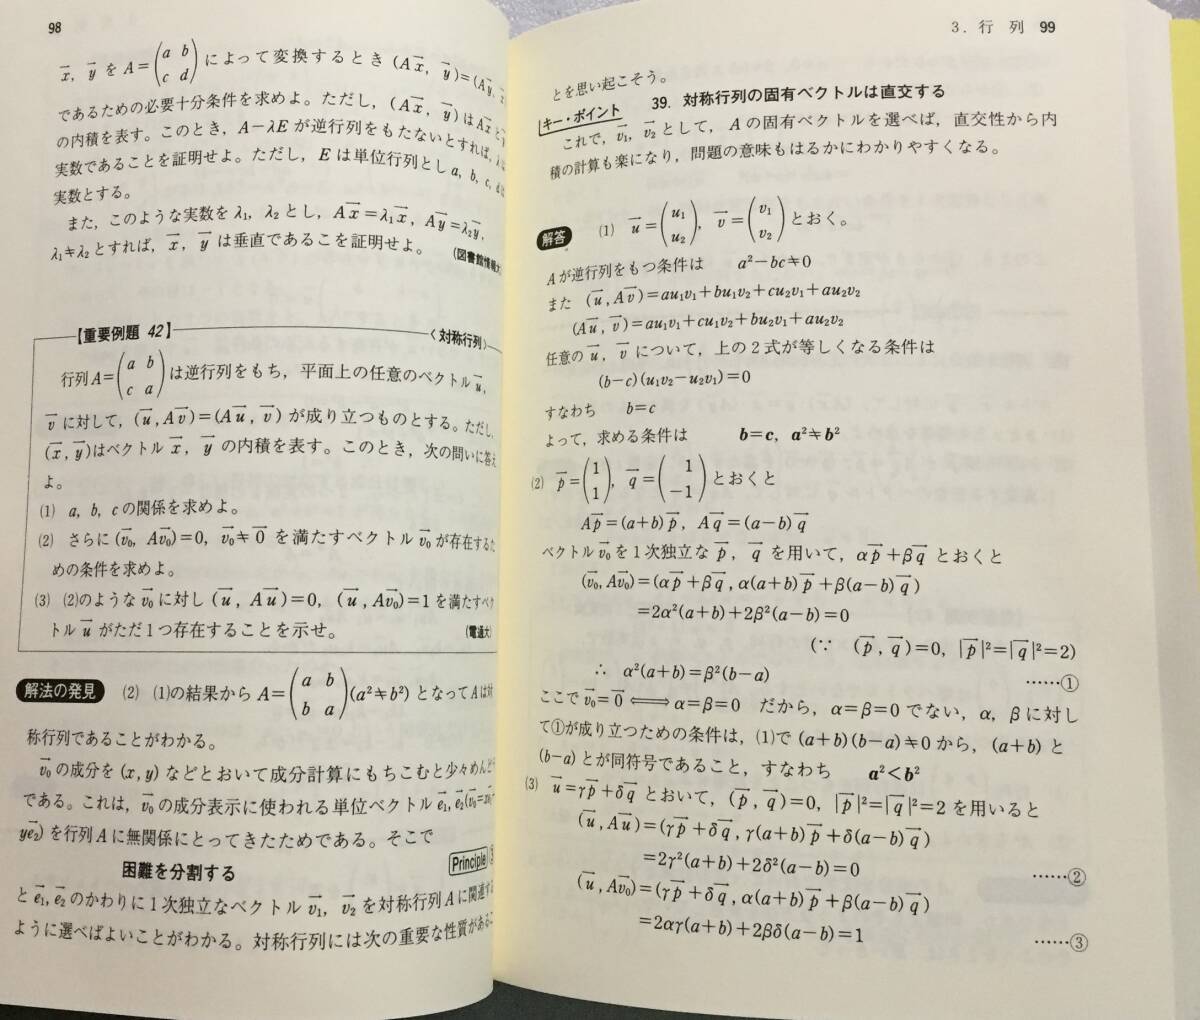 98
x⃗, y⃗ を A=(a b c d) によって変換するとき (Ax⃗, y⃗)=(Ay⃗, x⃗
であるための必要十分条件を求めよ。ただし, (Ax⃗, y⃗) は Ax⃗ と
の内積を表す。このとき, A−λE が逆行列をもたないとすれば, λ
実数であることを証明せよ。ただし, E は単位行列とし a, b, c, d
実数とする。
また, このような実数を λ₁, λ₂ とし, Ax⃗=λ₁x⃗, Ay⃗=λ₂y⃗,
λ₁≠λ₂ とすれば, x⃗, y⃗ は垂直であるこを証明せよ。 (図書館情報大)
【重要例題 42】 〈対称行列〉
行列 A=(a b c a) は逆行列をもち, 平面上の任意のベクトル u⃗,
v⃗ に対して, (u⃗, Av⃗)=(Au⃗, v⃗) が成り立つものとする。ただし,
(x⃗, y⃗) はベクトル x⃗, y⃗ の内積を表す。このとき, 次の問いに答え
よ。
(1) a, b, c の関係を求めよ。
(2) さらに (v⃗₀, Av⃗₀)=0, v⃗₀≠0⃗ を満たすベクトル v⃗₀ が存在するた
めの条件を求めよ。
(3) (2)のような v⃗₀ に対し (u⃗, Au⃗)=0, (u⃗, Av⃗₀)=1 を満たすベク
トル u⃗ がただ1つ存在することを示せ。 (電通大)
解法の発見 (2) (1)の結果から A=(a b b a)(a²≠b²) となって A は対
称行列であることがわかる。
v⃗₀ の成分を (x, y) などとおいて成分計算にもちこむと少々めんどう
である。これは, v⃗₀ の成分表示に使われる単位ベクトル e⃗₁, e⃗₂(v⃗₀=xe⃗₁+
ye⃗₂) を行列 A に無関係にとってきたためである。そこで
困難を分割する Principle
と e⃗₁, e⃗₂ のかわりに1次独立なベクトル v⃗₁, v⃗₂ を対称行列 A に関連する
ように選べばよいことがわかる。対称行列には次の重要な性質があるこ
3. 行 列 99
とを思い起こそう。
キー・ポイント 39. 対称行列の固有ベクトルは直交する
これで, v⃗₁, v⃗₂ として, A の固有ベクトルを選べば, 直交性から内
積の計算も楽になり, 問題の意味もはるかにわかりやすくなる。
解答 (1) u⃗=(u₁ u₂), v⃗=(v₁ v₂) とおく。
A が逆行列をもつ条件は a²−bc≠0
また (u⃗, Av⃗)=au₁v₁+bu₁v₂+cu₂v₁+au₂v₂
(Au⃗, v⃗)=au₁v₁+cu₁v₂+bu₂v₁+au₂v₂
任意の u⃗, v⃗ について, 上の2式が等しくなる条件は
(b−c)(u₁v₂−u₂v₁)=0
すなわち b=c
よって, 求める条件は b=c, a²≠b²
(2) p⃗=(1 1), q⃗=(1 −1) とおくと
Ap⃗=(a+b)p⃗, Aq⃗=(a−b)q⃗
ベクトル v⃗₀ を1次独立な p⃗, q⃗ を用いて, αp⃗+βq⃗ とおくと
(v⃗₀, Av⃗₀)=(αp⃗+βq⃗, α(a+b)p⃗+β(a−b)q⃗)
=2α²(a+b)+2β²(a−b)=0
(∵ (p⃗, q⃗)=0, |p⃗|²=|q⃗|²=2)
∴ α²(a+b)=β²(b−a) ……①
ここで v⃗₀=0⃗ ⟺ α=β=0 だから, α=β=0 でない, α, β に対し
て①が成り立つための条件は, (1)で (a+b)(b−a)≠0 から, (a+b) と
(b−a) とが同符号であること, すなわち a²<b²
(3) u⃗=γp⃗+δq⃗ とおいて, (p⃗, q⃗)=0, |p⃗|²=|q⃗|²=2 を用いると
(u⃗, Au⃗)=(γp⃗+δq⃗, γ(a+b)p⃗+δ(a−b)q⃗)
=2γ²(a+b)+2δ²(a−b)=0 ……②
(u⃗, Av⃗₀)=(γp⃗+δq⃗, α(a+b)p⃗+β(a−b)q⃗)
=2αγ(a+b)+2βδ(a−b)=1 ……③